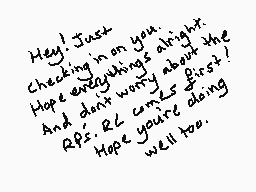 Hey! Just
checking in on you.
Hope everything's alright.
And don't worry about the
RP's. RL comes first!
Hope you're doing
well too.